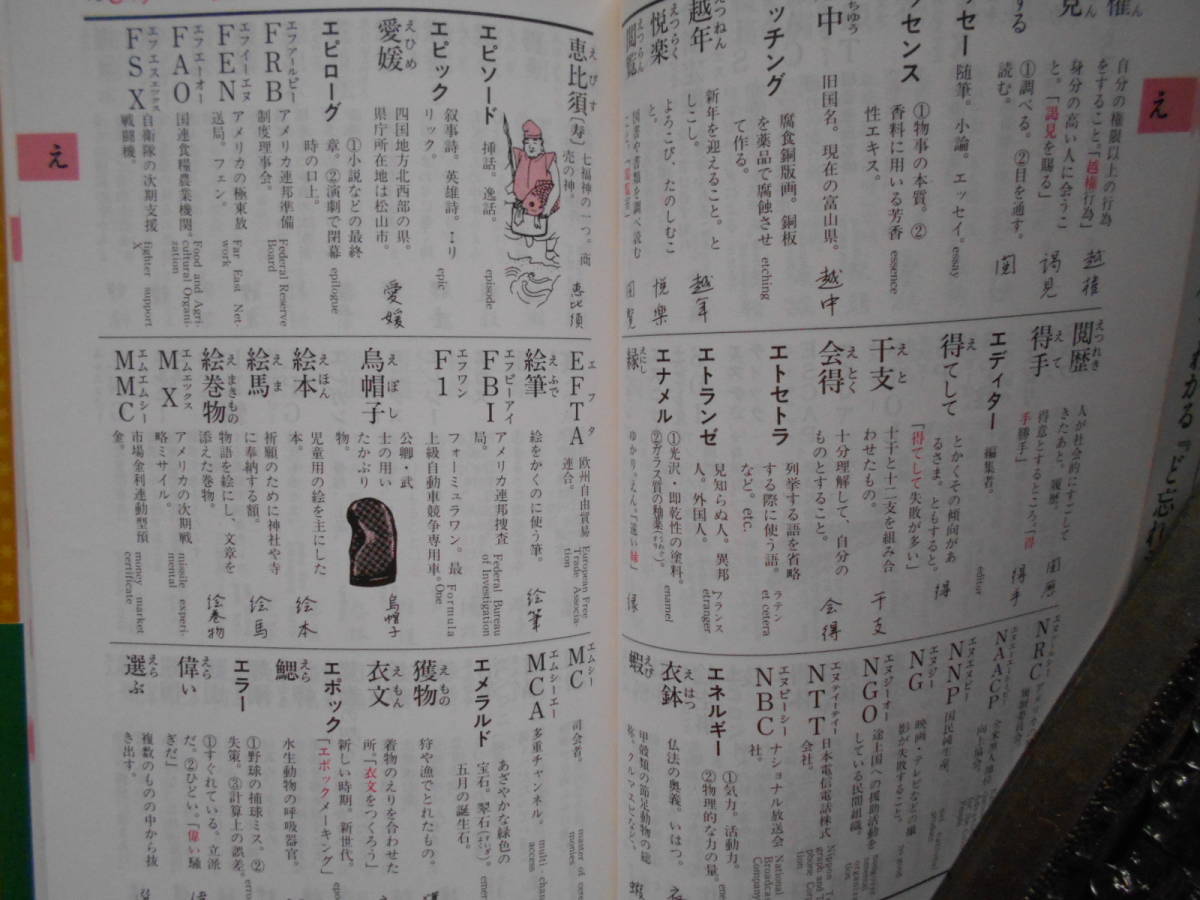 え
権
自分の権限以上の行為
をすること。「越権行為」
越権
見
身分の高い人に会うこ
と。「謁見を賜る」
謁見
する
①調べる。②目を通す。
読む。
閲
ッセー
随筆。小論。エッセイ。
essay
ッセンス
①物事の本質。②
香料に用いる芳香
性エキス。
essence
中
ちゅう
旧国名。現在の富山県。
越中
ッチング
腐食銅版画。銅板
を薬品で腐蝕させ
て作る。
etching
越年
えつねん
新年を迎えること。と
しこし。
越年
悦楽
えつらく
よろこび、たのしむこ
と。
悦楽
閲覧
えつらん
図書や書類を調べ読む
閲歴
えつれき
人が社会的にすごして
きたあと。履歴。
閲歴
得手
えて
得意とするところ。「得
手勝手」
得手
エディター
編集者。
editor
得てして
とかくその傾向があ
るさま。ともすると。
「得てして失敗が多い」
得
干支
えと
十干と十二支を組み合
わせたもの。
干支
会得
えとく
十分理解して、自分の
ものとすること。
会得
エトセトラ
列挙する語を省略
する際に使う語。
など。etc.
ラテン
et cetera
エトランゼ
見知らぬ人。異邦
人。外国人。
フランス
etranger
エナメル
①光沢・即乾性の塗料。
②ガラス質の釉薬
enamel
縁
えにし
ゆかり。えん。
縁
NRC
NAACP
NNP
エヌエヌピー
国民純生産。
NG
エヌジー
映画・テレビなどの撮
影が失敗すること。
no good
NGO
エヌジーオー
途上国への援助活動を
している民間組織。
NTT
エヌティーティー
日本電信電話株式
会社。
NBC
エヌビーシー
ナショナル放送会
社。
National
Broadcasting
Company
エネルギー
①気力。活動力。
②物理的な力の量。
衣鉢
えはつ
仏法の奥義。いはつ。
蝦
えび
甲殻類の節足動物の総
え
恵比須(寿)
えびす
七福神の一つ。商
売の神。
恵比須
エピソード
挿話。逸話。
episode
エピック
叙事詩。英雄詩。↓り
リック。
epic
愛媛
えひめ
四国地方北西部の県。
県庁所在地は松山市。
愛媛
エピローグ
①小説などの最終
章。②演劇で閉幕
時の口上。
epilogue
FRB
エフアールビー
アメリカ連邦準備
制度理事会。
Federal Reserve
Board
FEN
エフイーエヌ
アメリカの極東放
送局。フェン。
Far East Net-
work
FAO
エフエーオー
国連食糧農業機関。
Food and Agri-
cultural Organi-
zation
FSX
エフエスエックス
自衛隊の次期支援
戦闘機。
fighter support
X
EFTA
エフタ
欧州自由貿易
連合。
European Free
Trade Associa-
tion
絵筆
えふで
絵をかくのに使う筆。
絵筆
FBI
エフビーアイ
アメリカ連邦捜査
局。
Federal Bureau
of Investigation
F1
エフワン
フォーミュラワン。最
上級自動車競争専用車。
Formula
One
烏帽子
えぼし
公卿・武
士の用い
たかぶり
物。
烏帽子
絵本
えほん
児童用の絵を主にした
本。
絵本
絵馬
えま
祈願のために神社や寺
に奉納する額。
絵馬
絵巻物
えまきもの
物語を絵にし、文章を
添えた巻物。
絵巻物
MX
エムエックス
アメリカの次期戦
略ミサイル。
missile experi-
mental
MMC
エムエムシー
市場金利連動型預
金。
money market
certificate
MC
エムシー
司会者。
master of cere-
monies
MCA
エムシーエー
多重チャンネル。
multi-chan
access
エメラルド
あざやかな緑色の
宝石。翠石
五月の誕生石。
獲物
えもの
狩や漁でとれたもの。
衣文
えもん
着物のえりを合わせた
所。「衣文をつくろう」
エポック
新しい時期。新世代。
「エポックメーキング」
鰓
えら
水生動物の呼吸器官。
エラー
①野球の捕球ミス。②
失策。③計算上の誤差。
偉い
えら
①すぐれている。立派
だ。②ひどい。「偉い騒
ぎだ」
選ぶ
えら
複数のものの中から抜
き出す。